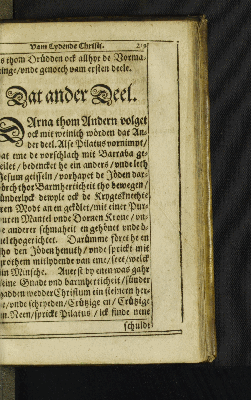 Vam Lydende Christi.
s thom Drüdden ock allhyr de Vorma
inge/ vnde genoech vam ersten deele.
Dat ander Deel.
Darna thom Andern volget
ock mit weinich wörden dat An-
der deel. Alse Pilatus vornimpt/
at eme de vorschlach mit Barraba ge-
eilet/ bedencket he ein anders/ vnde leth
Jesum geisseln/ vorhapet de Jöden dar-
dorch thor Barmherticheit tho bewegen/
sünderlyck dewyle ock de Krygesknechte
eren Modt an em gekölet/ mit einer Pur-
puren Mantel vnde Dornen Krone/ vn-
e anderer schmaheit en gehönet vnde ü-
uel thogerichtet. Darümme föret he en
tho den Jöden henuth/ vnde sprickt mit
grothem mitlydende van eme/ seet/ welck
ein Minsche. Auerst dy enen was gahr
eine Gnade vnd barmherticheit/ sünder
hadden wedder Christum ein steinern her-
te/ vnde schryeden/ Crützige en/ Crützige
en. Neen/ sprickt Pilatus/ ick finde nene
schuldt